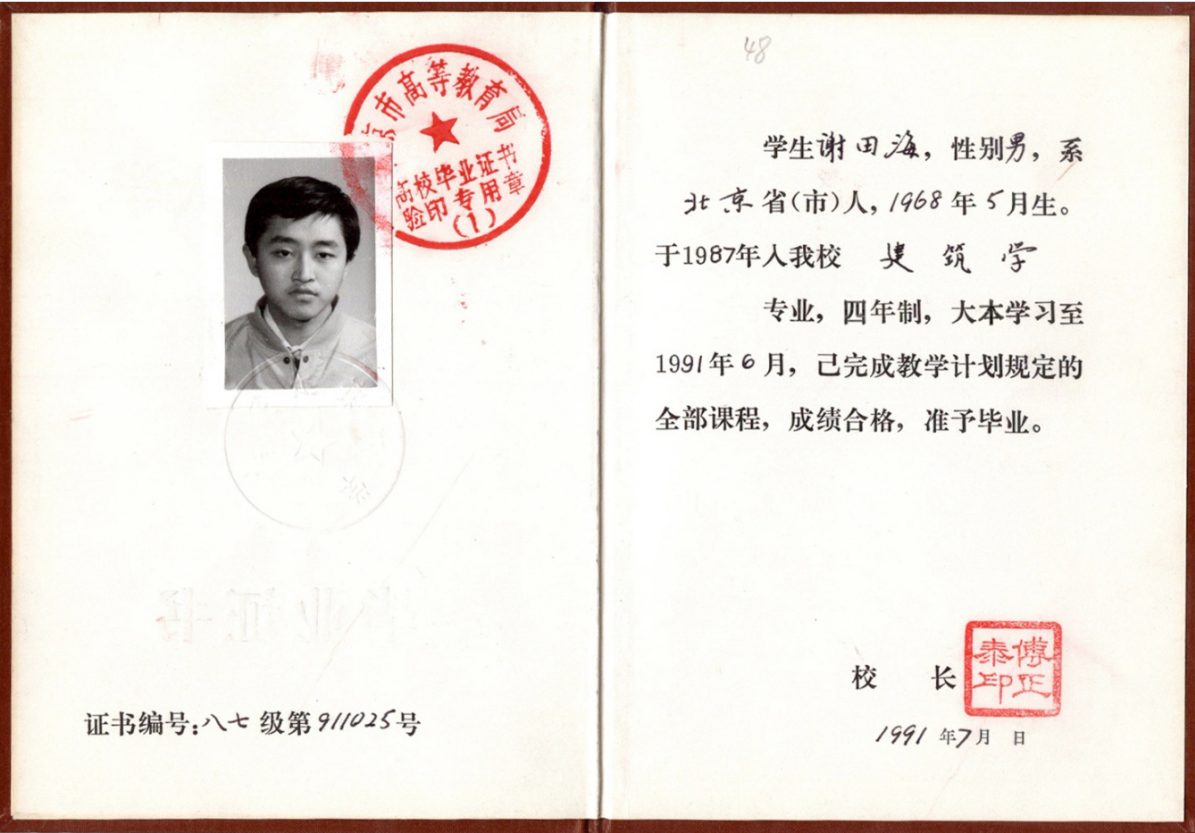 京市高等教育局
高校毕业证书
验印专用章
(1)
证书编号:八七级第911025号
48
学生谢田海，性别男，系
北京省(市)人，1968年5月生。
于1987年入我校 建筑学
专业，四年制，大本学习至
1991年6月，己完成教学计划规定的
全部课程，成绩合格，准予毕业。
校 长
傅正泰印
1991年7月 日